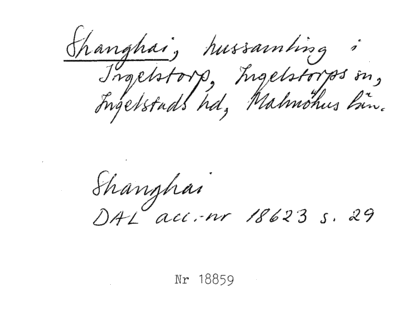 Shanghai, hussamling i
Ingelstorp, Ingelstorps sn,
Ingelstads hd, Malmöhus län.
Shanghai
DAL acc.-nr 18623 s. 29
Nr 18859